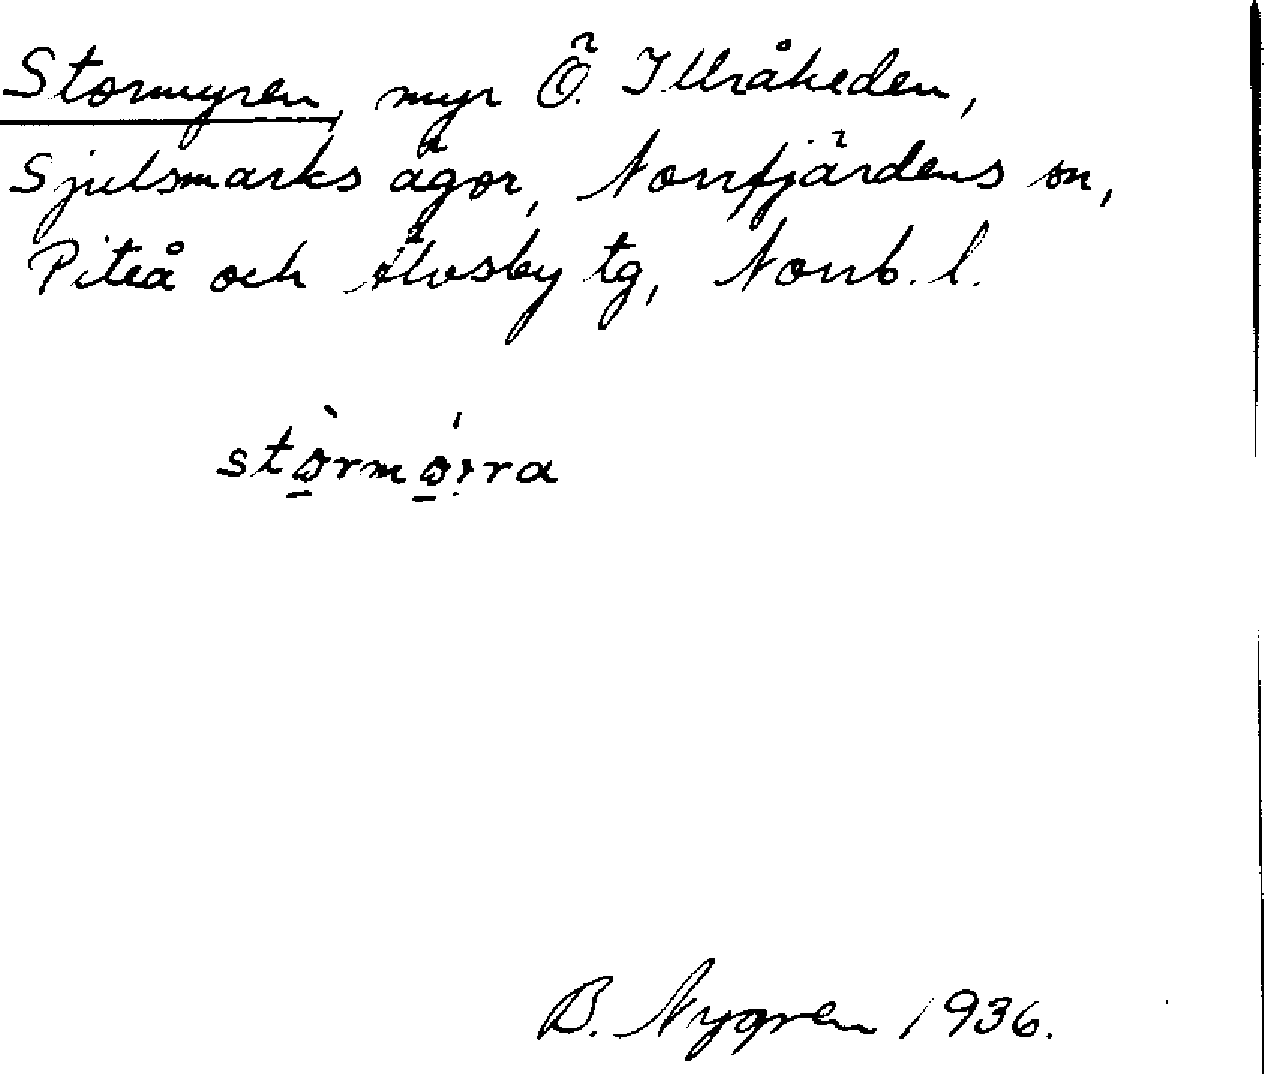 Stormyren, myr Ö. Illråheden,
Sjulsmarks ägor, Norrfjärdens sn,
Piteå och Älvsby tg, Norrb. l.
B. Nygren 1936.